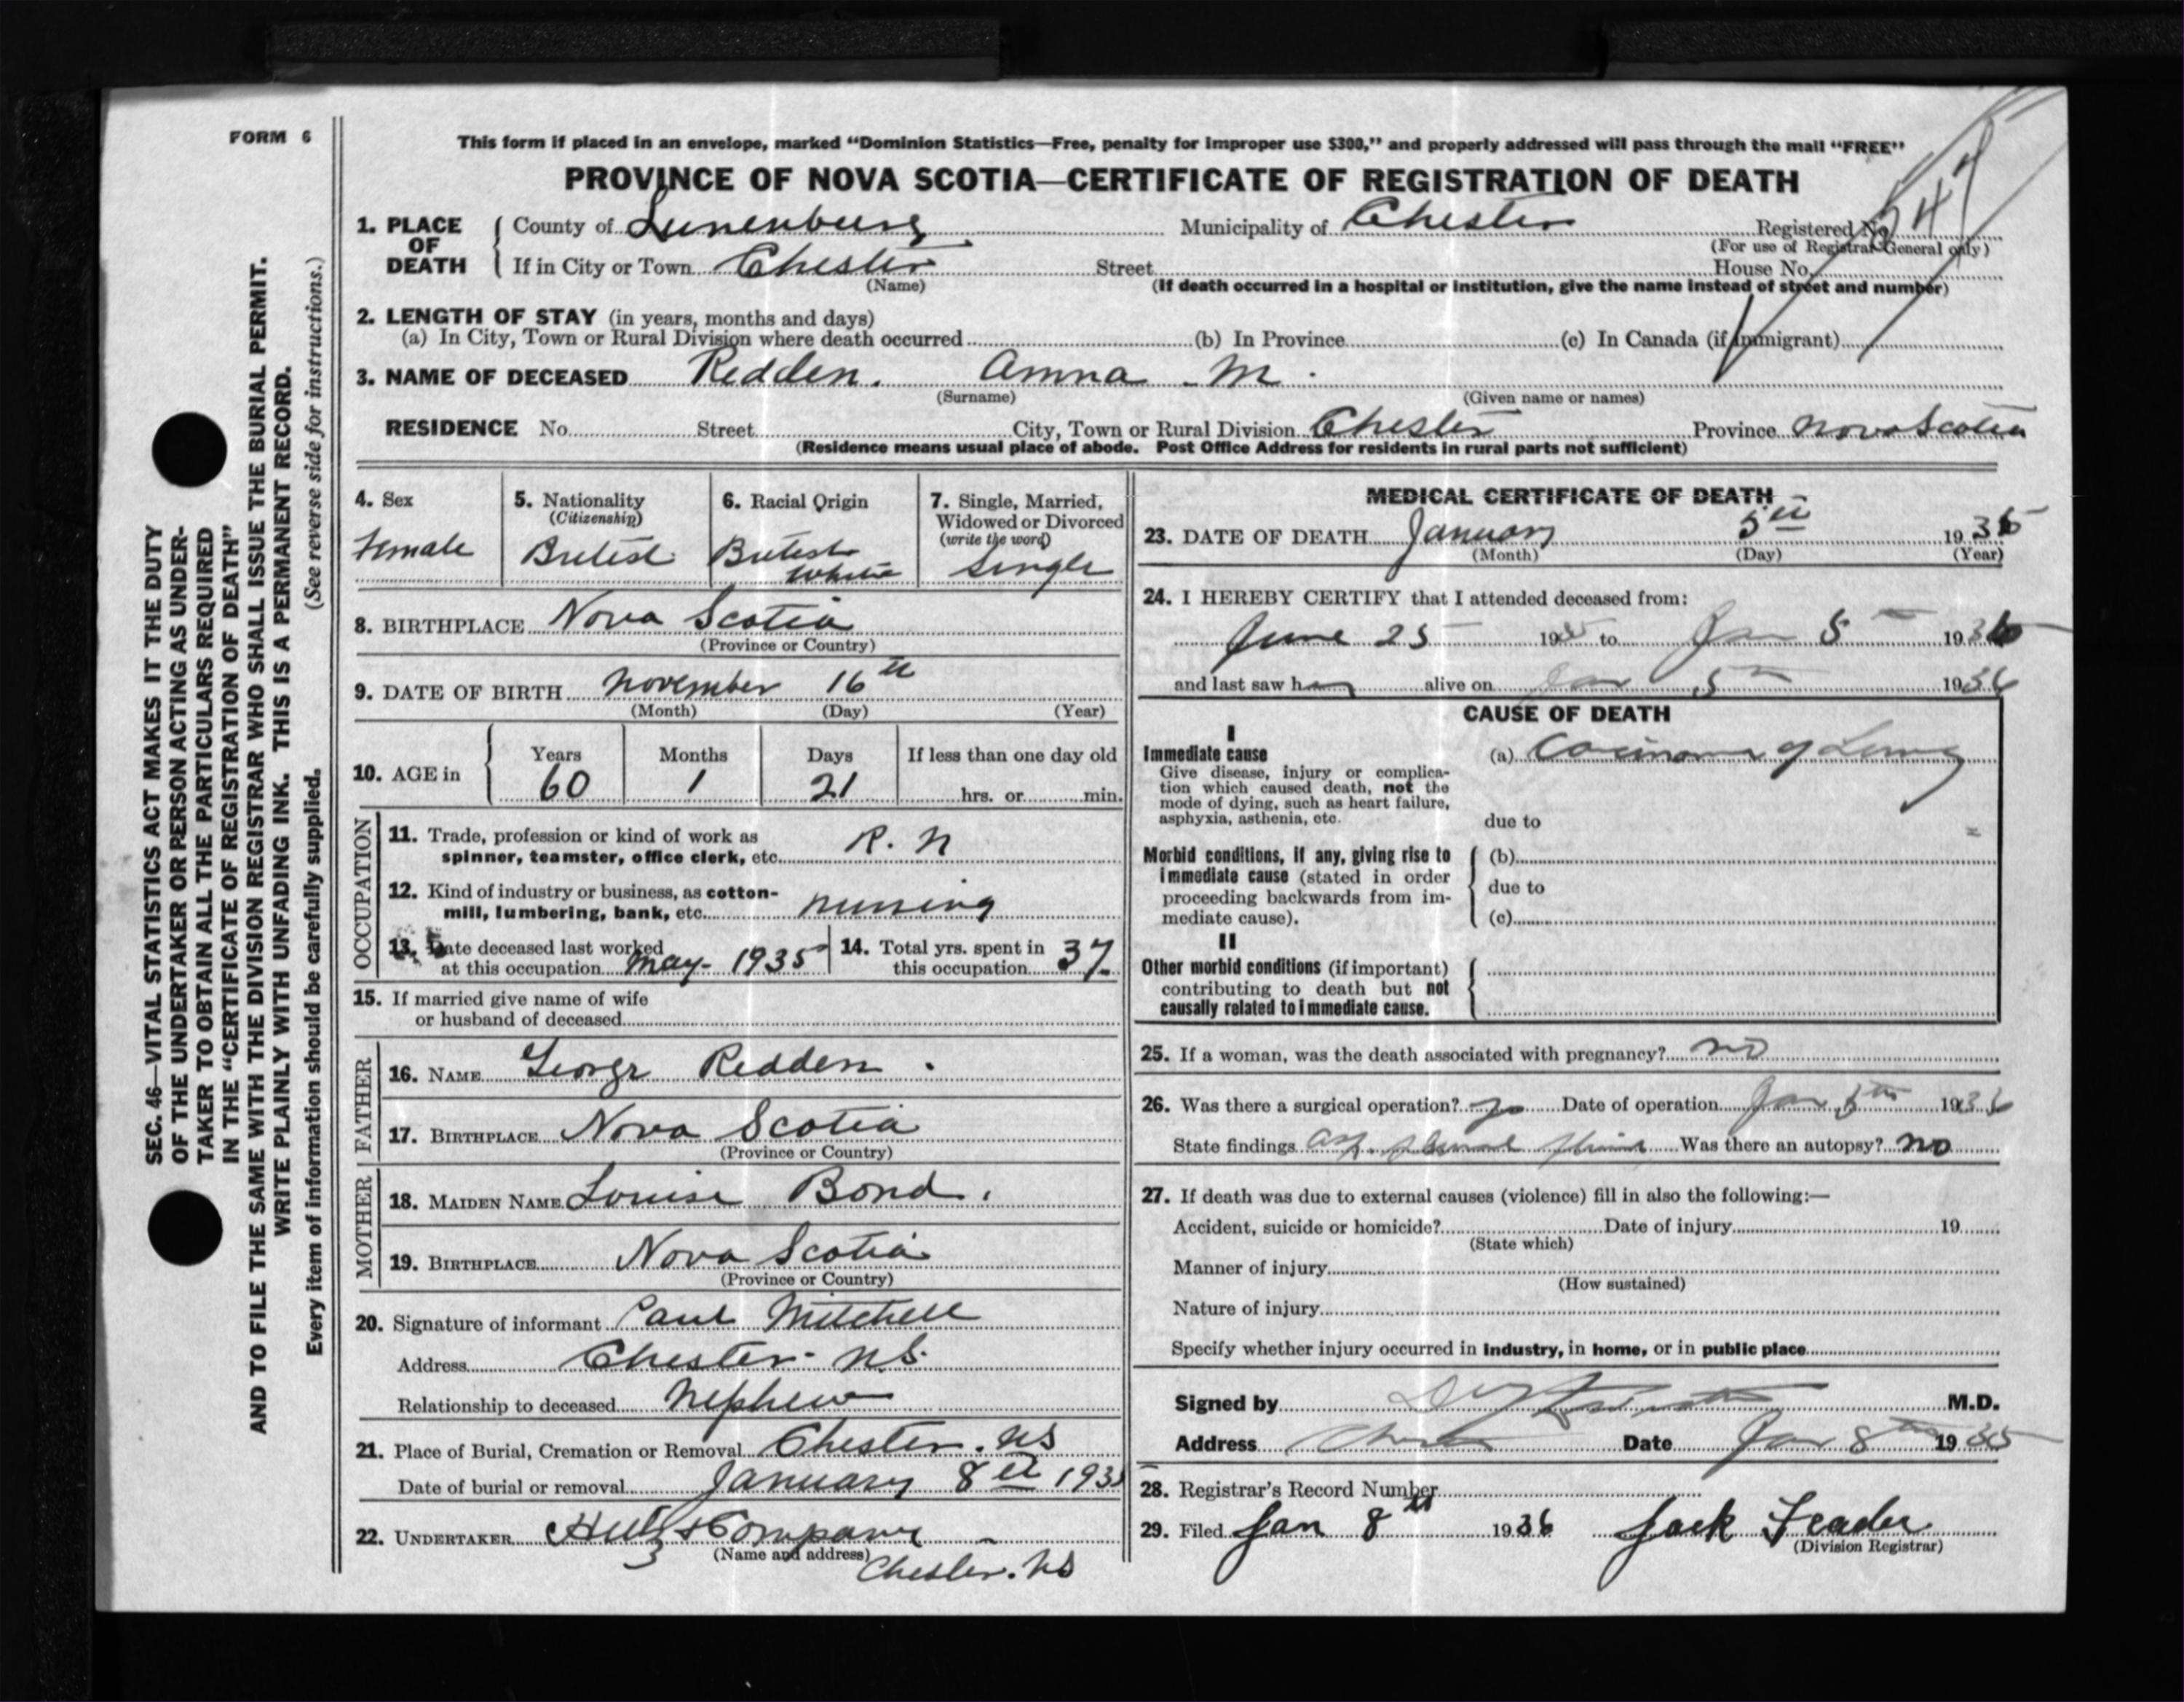 FORM 6
SEC. 46—VITAL STATISTICS ACT MAKES IT THE DUTY
OF THE UNDERTAKER OR PERSON ACTING AS UNDER-
TAKER TO OBTAIN ALL THE PARTICULARS REQUIRED
IN THE "CERTIFICATE OF REGISTRATION OF DEATH"
AND TO FILE THE SAME WITH THE DIVISION REGISTRAR WHO SHALL ISSUE THE BURIAL PERMIT.
WRITE PLAINLY WITH UNFADING INK. THIS IS A PERMANENT RECORD.
Every item of information should be carefully supplied. (See reverse side for instructions.)
This form if placed in an envelope, marked "Dominion Statistics—Free, penalty for improper use $300," and properly addressed will pass through the mail "FREE"
PROVINCE OF NOVA SCOTIA—CERTIFICATE OF REGISTRATION OF DEATH
1. PLACE OF DEATH County of Lunenburg Municipality of Chester Registered No.
(For use of Registrar General only)
If in City or Town Chester Street House No.
(Name) (If death occurred in a hospital or institution, give the name instead of street and number)
2. LENGTH OF STAY (in years, months and days)
(a) In City, Town or Rural Division where death occurred (b) In Province (c) In Canada (if immigrant)
3. NAME OF DECEASED Redden. Anna M.
(Surname) (Given name or names)
RESIDENCE No. Street City, Town or Rural Division Chester Province Nova Scotia
(Residence means usual place of abode. Post Office Address for residents in rural parts not sufficient)
4. Sex
Female
5. Nationality
(Citizenship)
British
6. Racial Origin
British
White
7. Single, Married,
Widowed or Divorced
(write the word)
Single
8. BIRTHPLACE Nova Scotia
(Province or Country)
9. DATE OF BIRTH November 16th
(Month) (Day) (Year)
10. AGE in Years Months Days If less than one day old
60 1 21 hrs. or min.
OCCUPATION
11. Trade, profession or kind of work as
spinner, teamster, office clerk, etc. R. N
12. Kind of industry or business, as cotton-
mill, lumbering, bank, etc. nursing
13. Date deceased last worked
at this occupation May- 1935
14. Total yrs. spent in
this occupation 37
15. If married give name of wife
or husband of deceased
FATHER
16. NAME George Redden.
17. BIRTHPLACE Nova Scotia
(Province or Country)
MOTHER
18. MAIDEN NAME Louise Bond.
19. BIRTHPLACE Nova Scotia
(Province or Country)
20. Signature of informant Paul Mitchell
Address Chester- N.S.
Relationship to deceased Nephew
21. Place of Burial, Cremation or Removal Chester. NS
Date of burial or removal January 8th 193
22. UNDERTAKER & Company
(Name and address)
Chester. NS
MEDICAL CERTIFICATE OF DEATH
23. DATE OF DEATH January 5th 1936
(Month) (Day) (Year)
24. I HEREBY CERTIFY that I attended deceased from:
June 25 19 to Jan 5th 1936
and last saw her alive on Jan 5th 1936
CAUSE OF DEATH
I
Immediate cause
Give disease, injury or complica-
tion which caused death, not the
mode of dying, such as heart failure,
asphyxia, asthenia, etc.
(a) Carcinoma of Lung
due to
Morbid conditions, if any, giving rise to
immediate cause (stated in order
proceeding backwards from im-
mediate cause).
(b)
due to
(c)
II
Other morbid conditions (if important)
contributing to death but not
causally related to immediate cause.
25. If a woman, was the death associated with pregnancy? no
26. Was there a surgical operation? Date of operation Jan 5th 1936
State findings Was there an autopsy? no
27. If death was due to external causes (violence) fill in also the following:—
Accident, suicide or homicide? Date of injury 19
(State which)
Manner of injury
(How sustained)
Nature of injury
Specify whether injury occurred in industry, in home, or in public place
Signed by M.D.
Address Chester Date Jan 8th 1935
28. Registrar's Record Number
29. Filed Jan 8th 1936 Jack Feader
(Division Registrar)